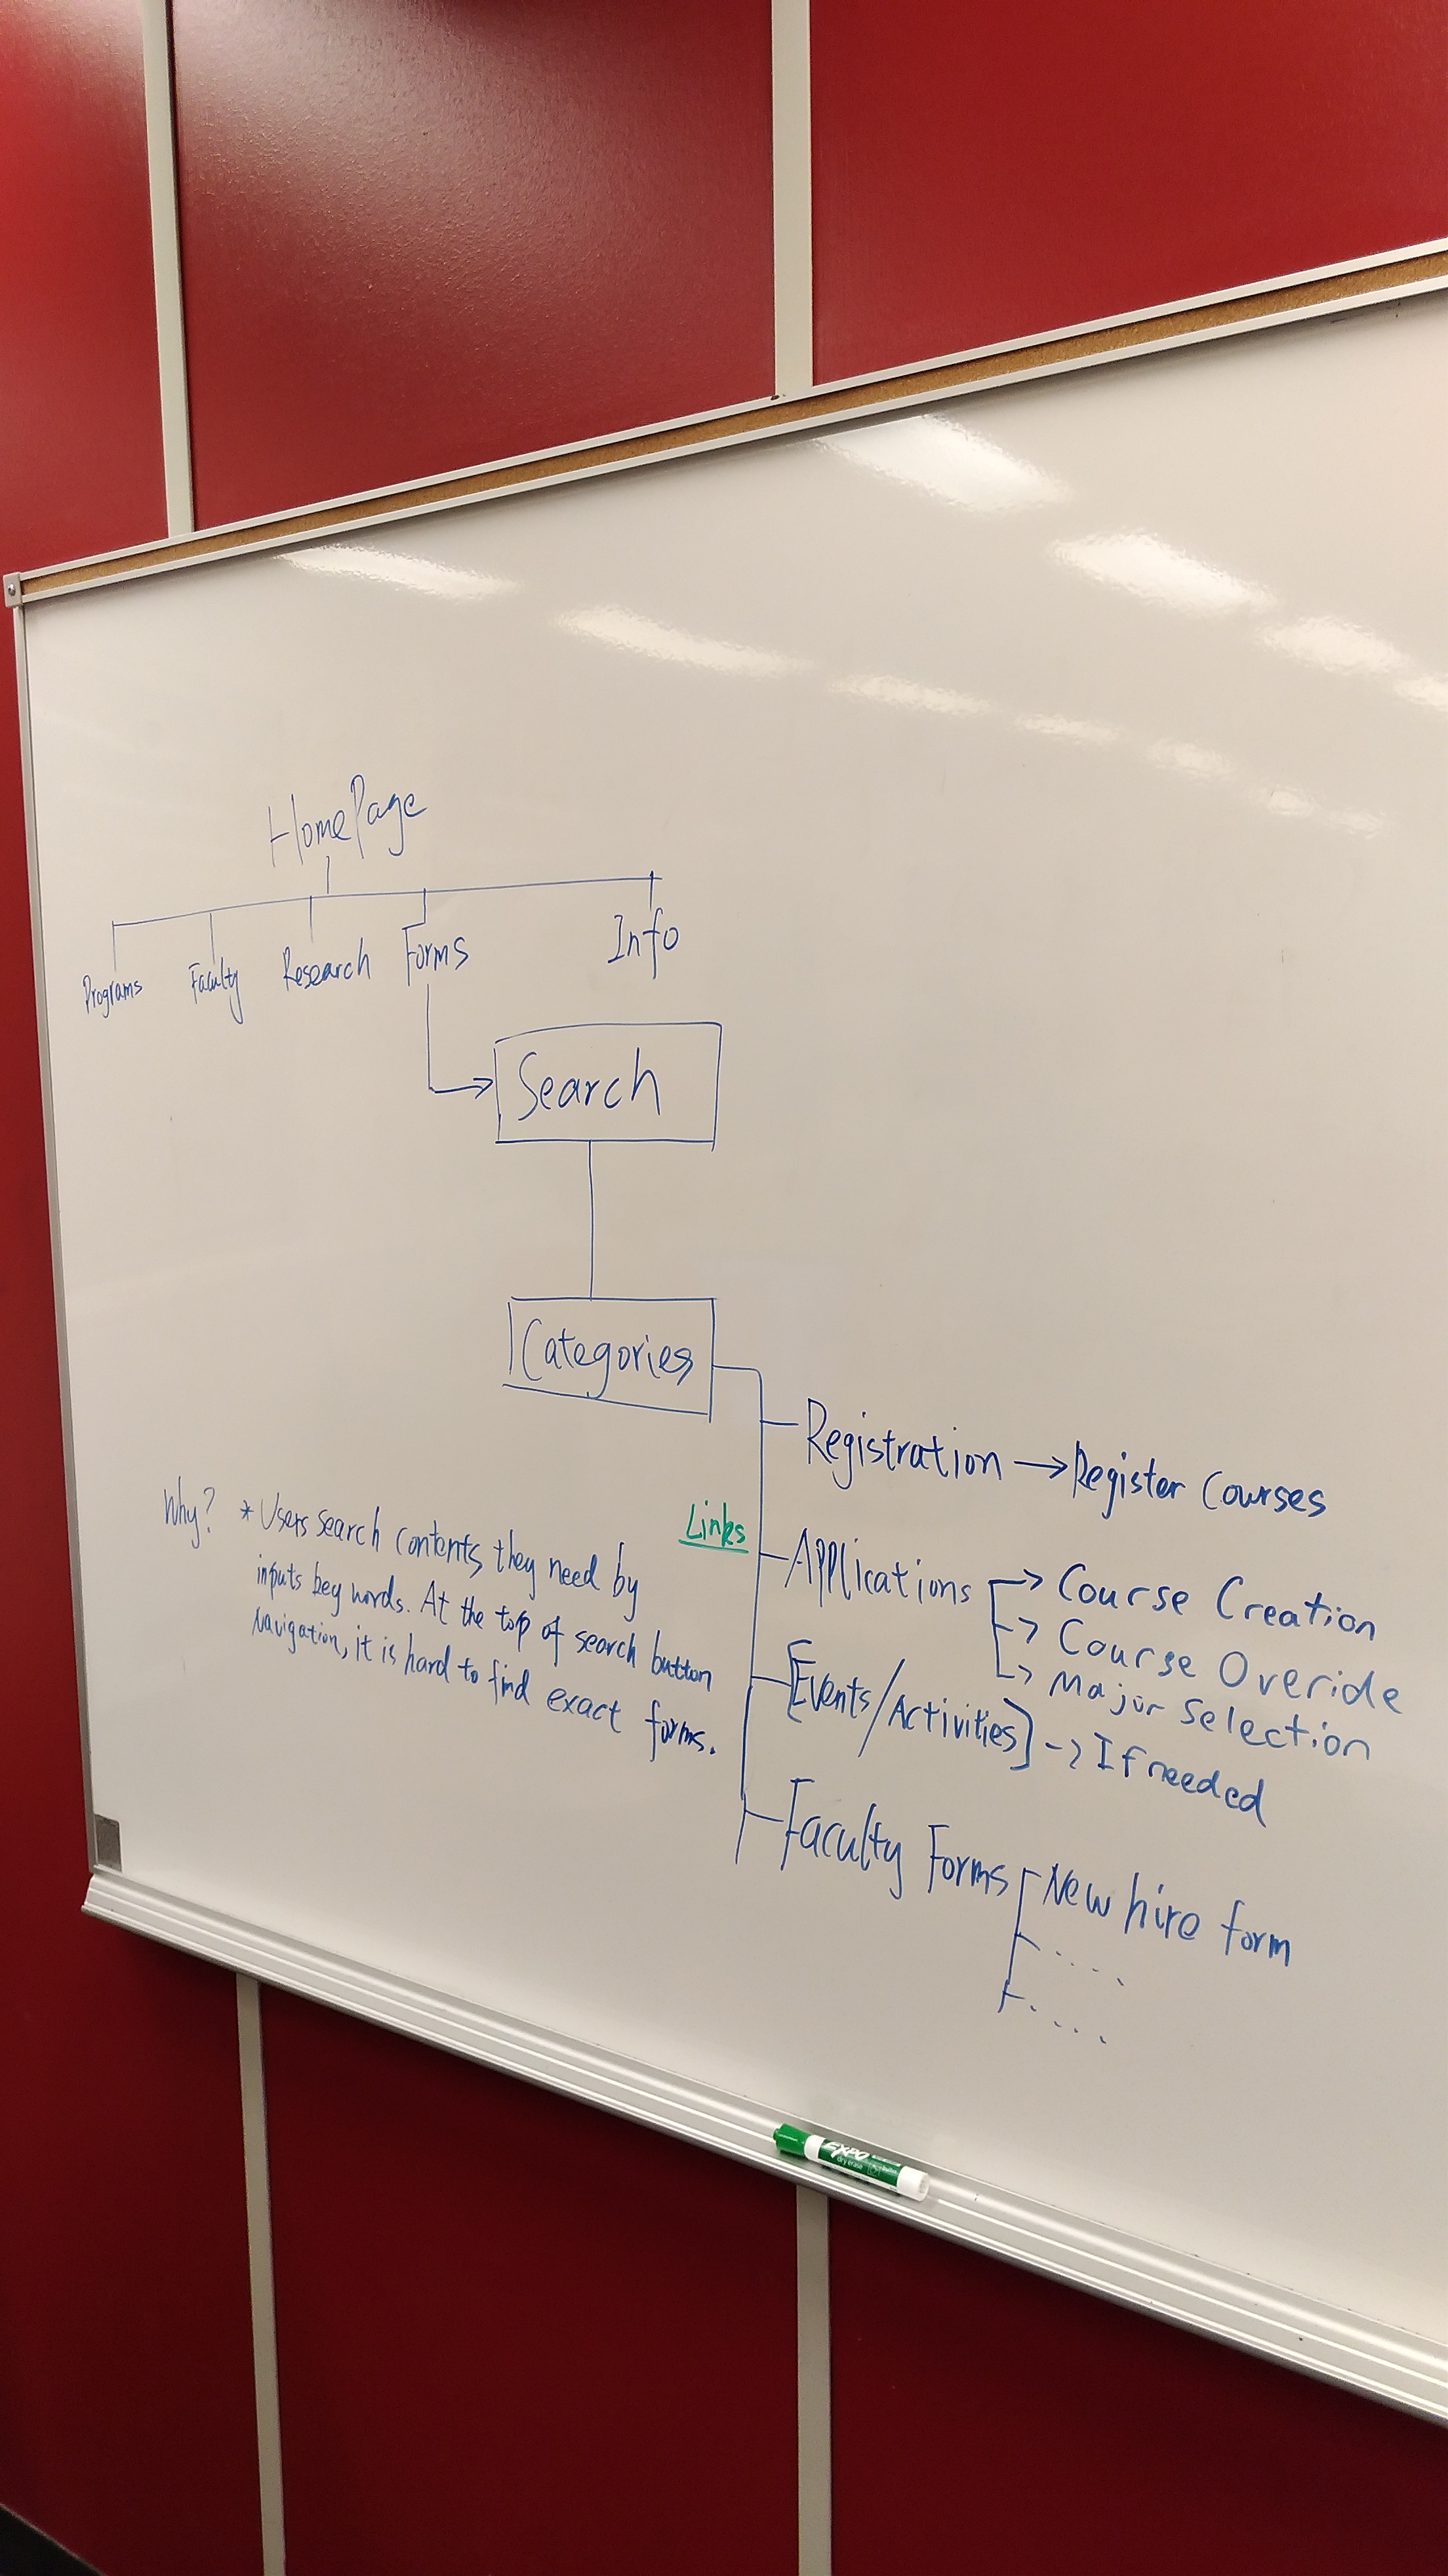 HomePage
Programs Faculty Research Forms Info
Search
Categories
Registration → Register Courses
Links
Applications → Course Creation
→ Course Overide
→ Major Selection
[Events/Activities] -> If needed
Faculty Forms New hire form
.....
.....
Why? * Users search contents they need by
inputs key words. At the top of search button
navigation, it is hard to find exact forms.
EXPO
dry erase